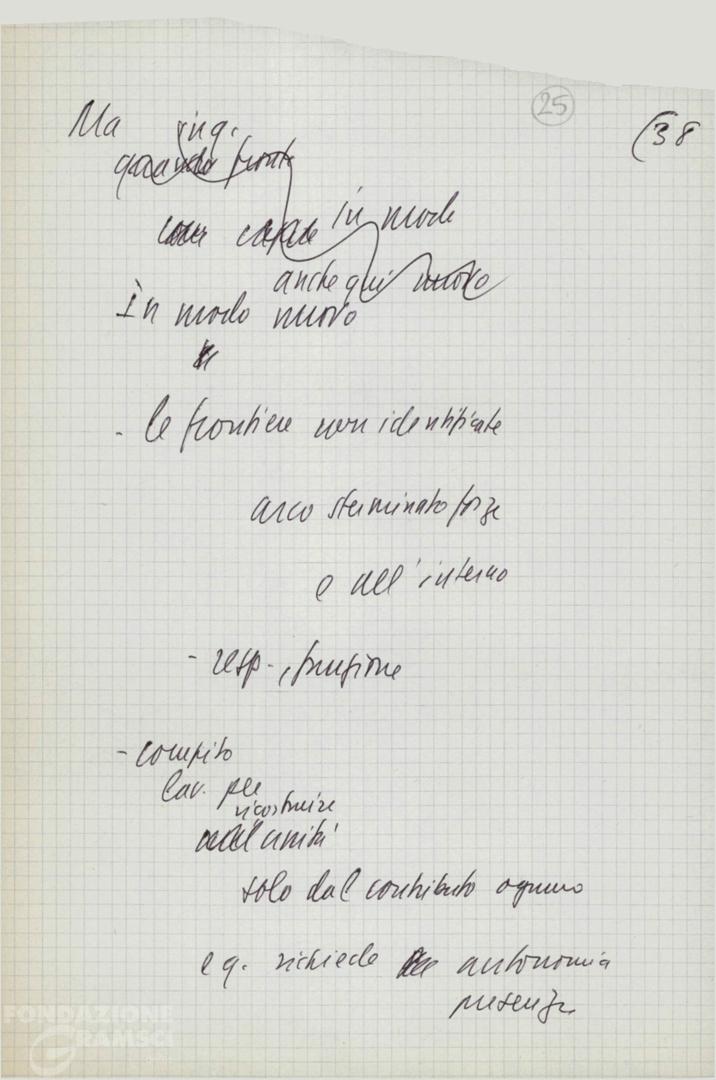 25
(38
Ma ing.
quando fronte
in modo
anche qui nuovo
In modo nuovo
- le frontiere non identificate
arco sterminato forze
e all'interno
- resp., funzione
- compito
lav. per
ricostruire
unità
solo dal contributo ognuno
e q. richiede autonomia
presenza
FONDAZIONE
GRAMSCI